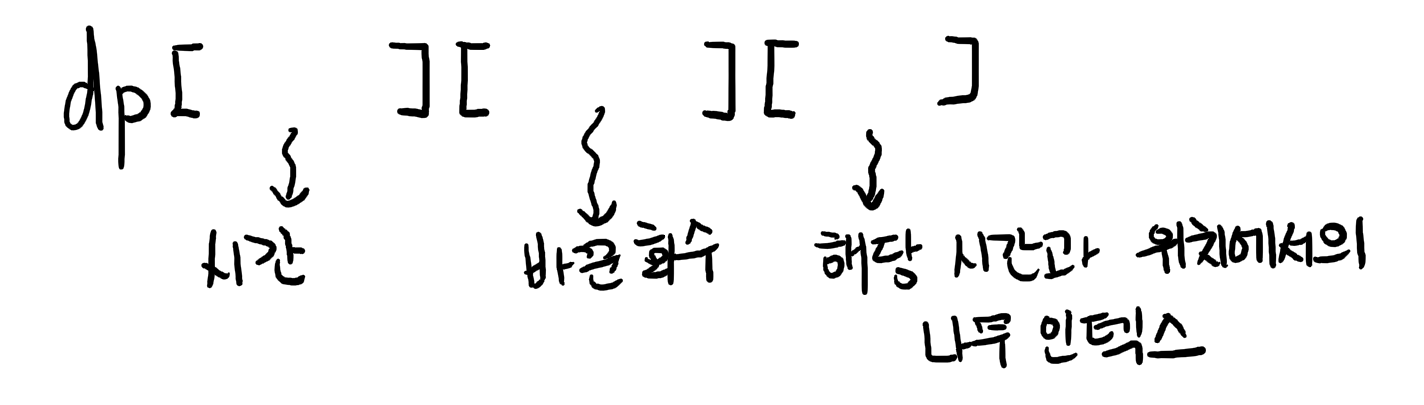 dp[ ][ ][ ]
시간 바꾼 횟수 해당 시간과 위치에서의
나무 인덱스